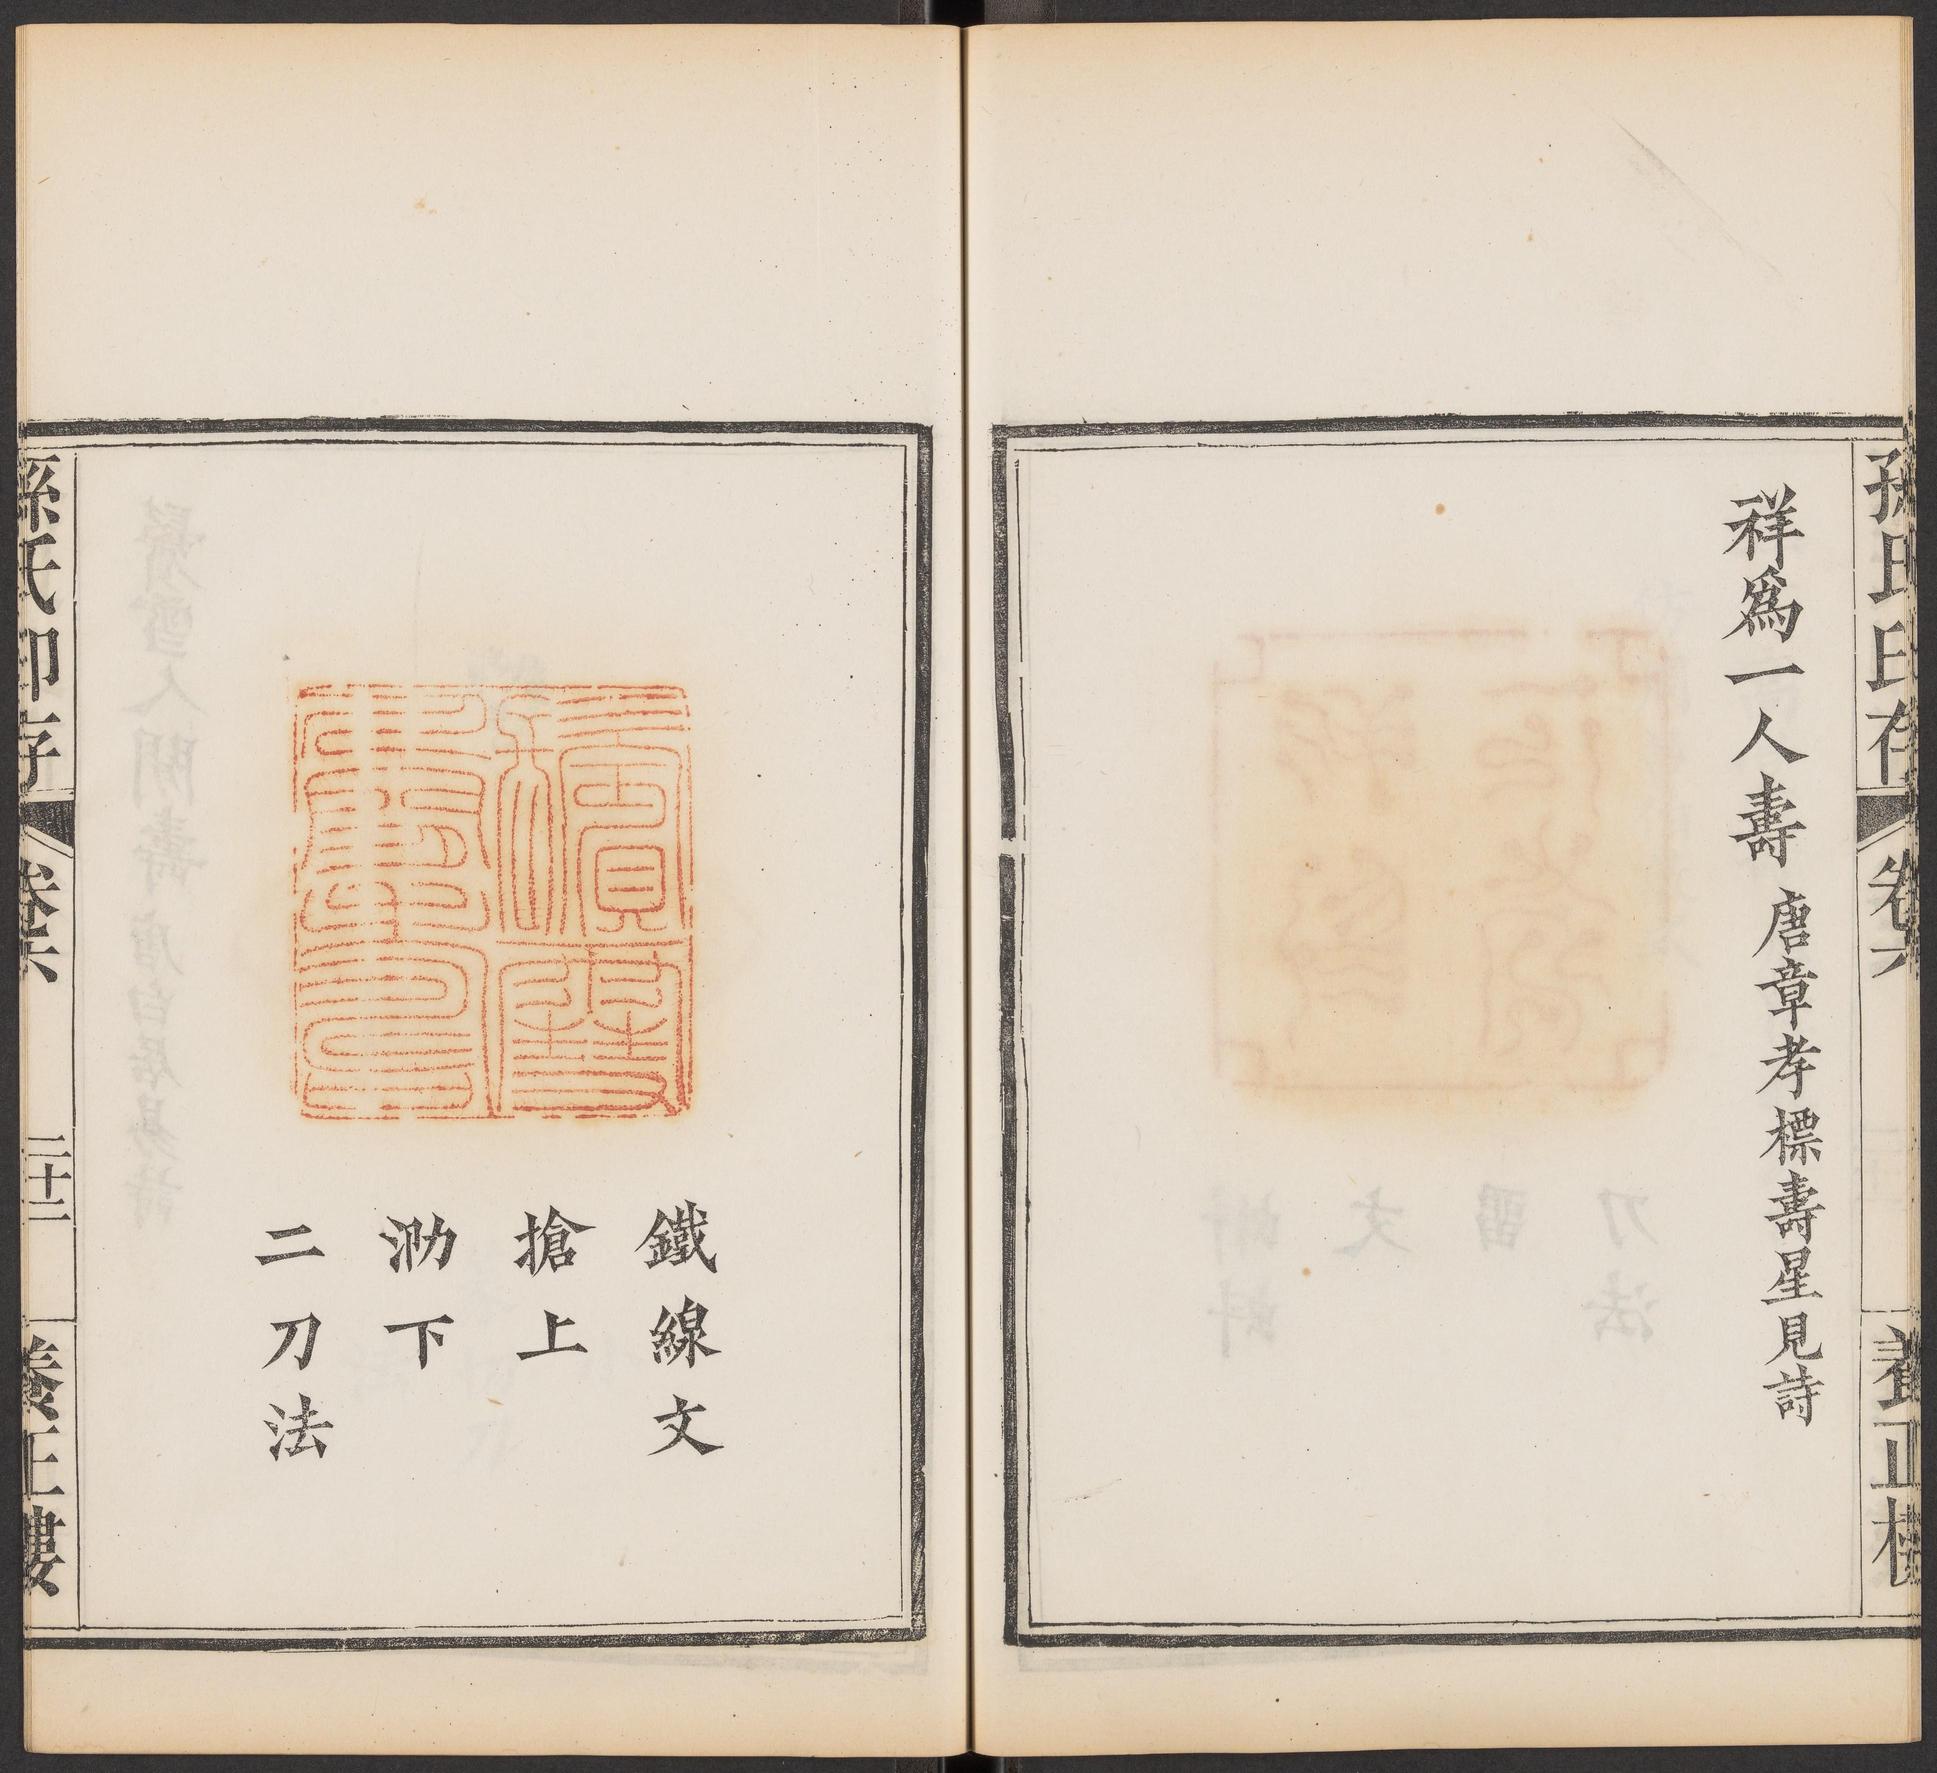 孫氏印存
卷六
養正樓
祥爲一人壽 唐章孝標壽星見詩
鐵線文
搶上
泐下
二刀法
孫氏印存
卷六
二十二
養正樓